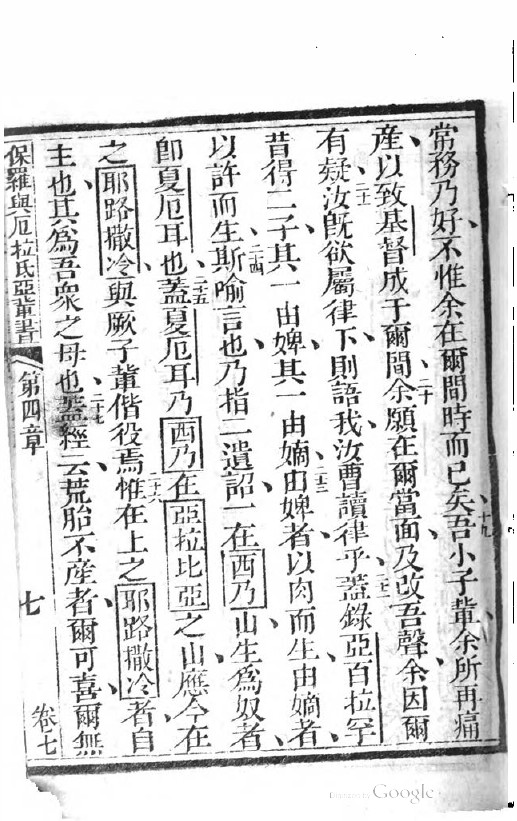 常務乃好、不惟余在爾間時而已矣、十九吾小子輩、余所再痛
產、以致基督成于爾間、二十余願在爾當面、及改吾聲、余因爾
有疑、二十一汝旣欲屬律下、則語我、汝曹讀律乎、二十二蓋錄亞百拉罕
昔得二子、其一由婢、其一由嫡、二十三由婢者、以肉而生、由嫡者、
以許而生、二十四斯喻言也、乃指二遺詔、一在西乃山、生爲奴者、
卽夏厄耳也、二十五蓋夏厄耳乃西乃在亞拉比亞之山、應今在
之耶路撒冷、與厥子輩偕役焉、二十六惟在上之耶路撒冷者、自
主也、其爲吾衆之母也、二十七蓋經云、荒胎不產者、爾可喜、爾無
保羅與厄拉氏亞輩書 第四章 七 卷七
Digitized by Google